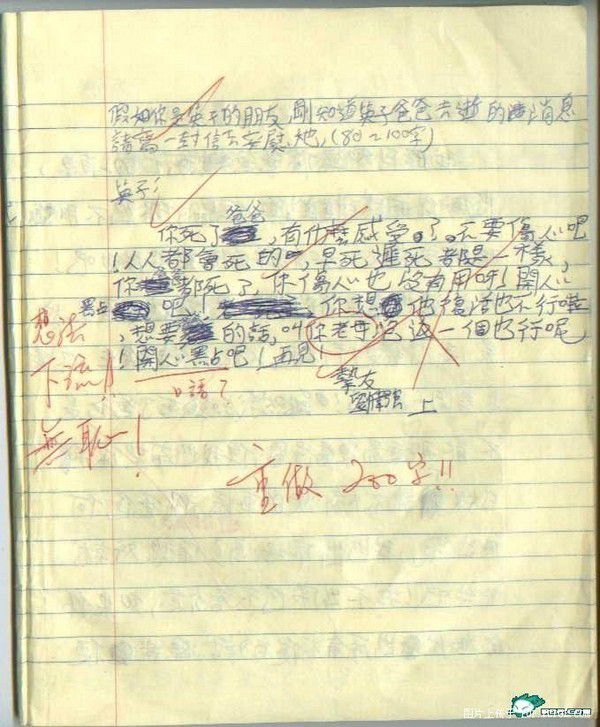 假如你是英子的朋友,剛知道英子爸爸去逝的消息
請寫一封信去安慰她,(80~100字)
英子:
你死了爸爸,有什麼感受。了。不要傷心吧
!人人都會死的,早死遲死都是一樣,
你都死了,你傷心也沒有用呀!開心
黑占吧,你想他復活也不行啦
,想要的話,叫你老母呢返一個也行呢
!開心黑占吧!再見
摯友
上
想法
下流!!
無恥!
口語?
重做 200字!!
图片上传